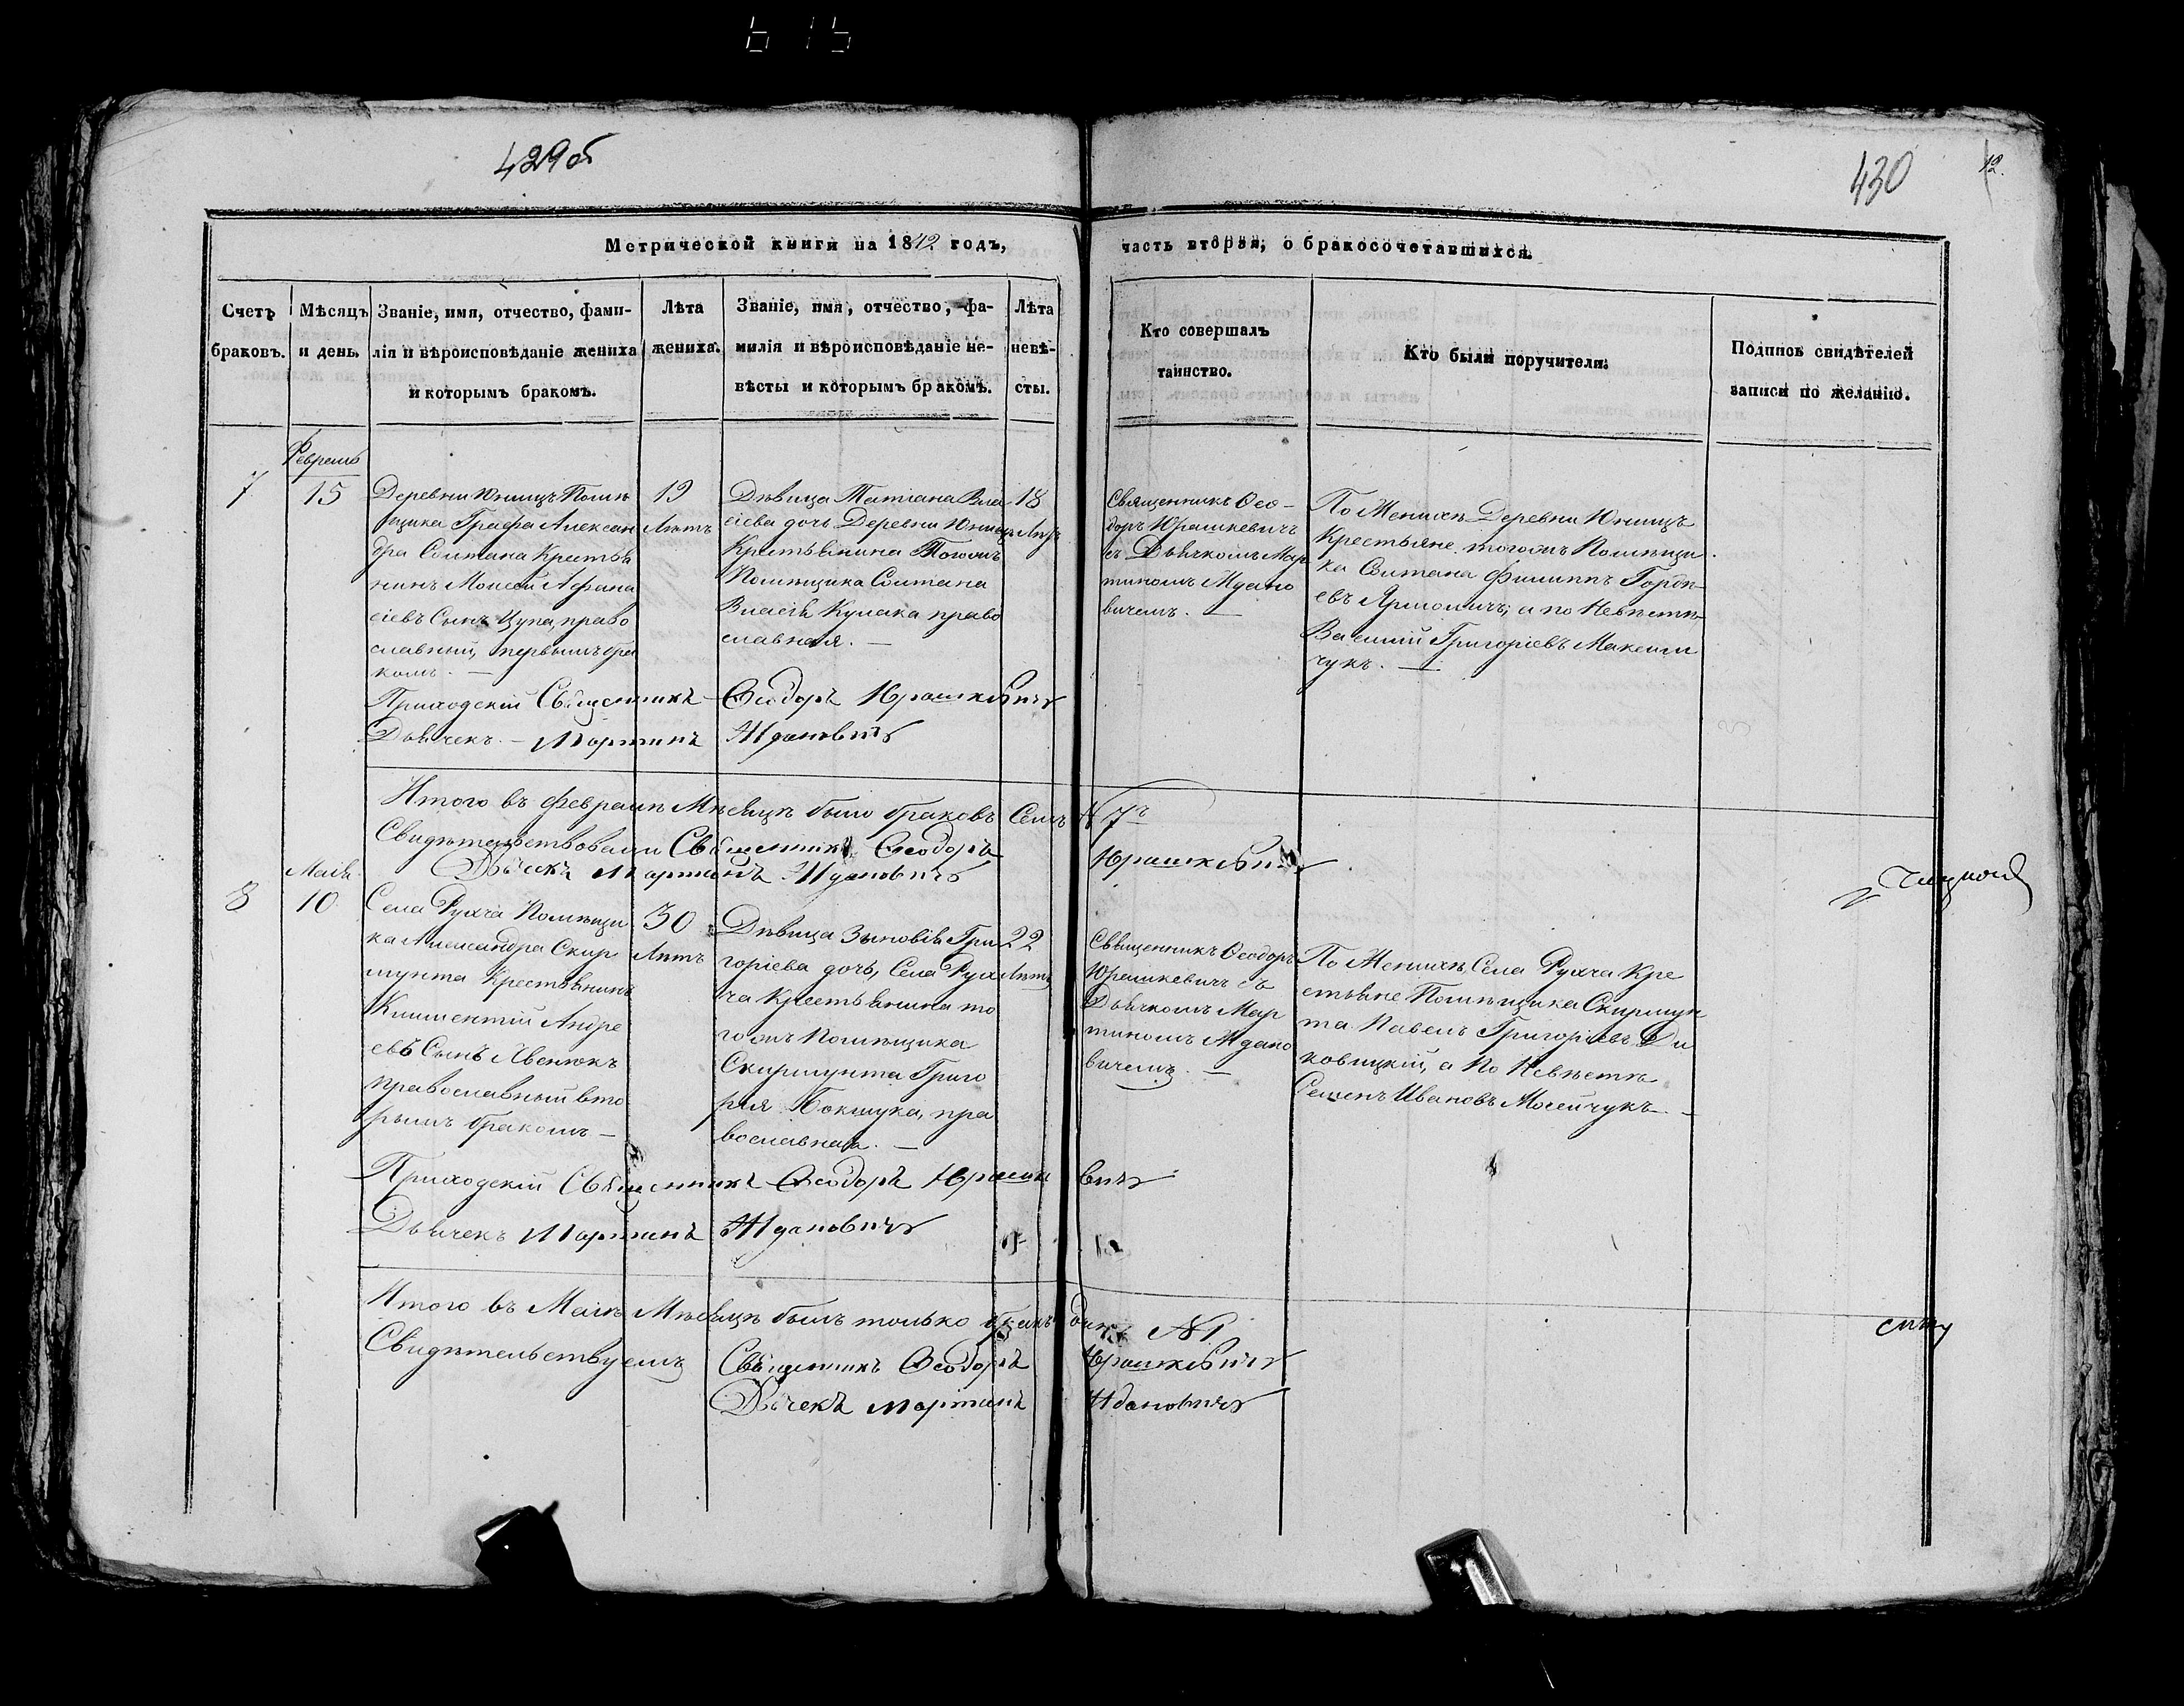 429об
430
12.
Метрической книги на 1842 годъ,
часть вторая, о бракосочетавшихся.
Счетъ браковъ.
Мѣсяцъ и день.
Званіе, имя, отчество, фами-
лія и вѣроисповѣданіе жениха
и которымъ бракомъ.
Лѣта
жениха.
Званіе, имя, отчество, фа-
милія и вѣроисповѣданіе не-
вѣсты и которымъ бракомъ.
Лѣта
невѣ-
сты.
Кто совершалъ
таинство.
Кто были поручители.
Подпись свидѣтелей
записи по желанію.
Февраль
7
15
Деревни Юницъ Помѣ
щика Графа Алексан
дра Солтана Крестья
нинъ Моисей Афана
сіевъ Сынъ Цупа, право
славный, первымъ бра
комъ. —
19
Лѣтъ
Дѣвица Татіана Вла
сіева дочь Деревни Юницъ
Крестьянина Тогожъ
Помѣщика Солтана
Власія Кулака право
славная. —
18
Лѣтъ
Священникъ Ѳео-
доръ Юрашкевичъ
съ Дьячкомъ Мар
тиномъ Ждано
вичемъ. —
По Женихѣ Деревни Юницъ
Крестьяне тогожъ Помѣщи
ка Солтана Филиппъ Гордѣ
евъ Ярмоличъ; а по Невѣстѣ
Василий Григоріевъ Максим
чукъ. —
Приходскій Священникъ Ѳеодоръ Юрашкевичъ
Дьячекъ — Мартинъ Ждановичъ
Итого въ Февралѣ Мѣсяцѣ было браковъ Семь N 7ъ
Свидѣтельствовали Священникъ Ѳеодоръ Юрашкевичъ
Дьячекъ Мартинъ Ждановичъ
Маія
8
10
Села Рухча Помѣщи
ка Александра Скир
мунта Крестьянинъ
Климентій Андре
евъ Сынъ Явенюкъ
православный вто
рымъ бракомъ —
30
Лѣтъ
Дѣвица Зыновія Гри
горіева дочь, Села Рух
ча Крестьянина то
гожъ Помѣщика
Скирмунта Григо
рія Бокшука, пра
вославная. —
22
Лѣтъ
Священникъ Ѳеодоръ
Юрашкевичъ съ
Дьячкомъ Мар
тиномъ Ждано
вичемъ. —
По Женихѣ Села Рухча Кре
стьяне Помѣщика Скирмун
та Павелъ Григоріевъ Ди
ковицкій, а По Невѣстѣ
Семенъ Ивановъ Мосейчукъ. —
Приходскій Священникъ Ѳеодоръ Юрашкевичъ
Дьячекъ Мартинъ Ждановичъ
Итого въ Маіѣ Мѣсяцѣ былъ только бракъ одинъ N 1
Свидѣтельствуемъ Священникъ Ѳеодоръ Юрашкевичъ
Дьячекъ Мартинъ Ждановичъ